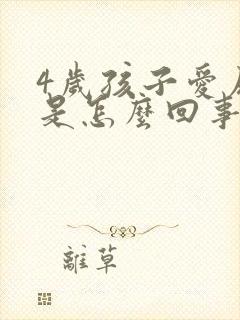 4歲孩子愛
是怎麼回事
離草